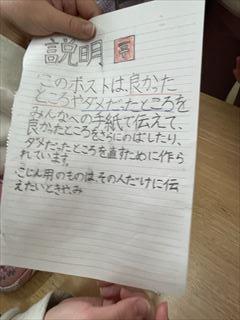 説明
・このポストは、良かった
ところやダメだったところを
みんなへの手紙で伝えて、
良かったところをさらにのばしたり、
ダメだったところを直すために作ら
れています。
・こじん用のものは、その人だけに伝
えたいときや、み